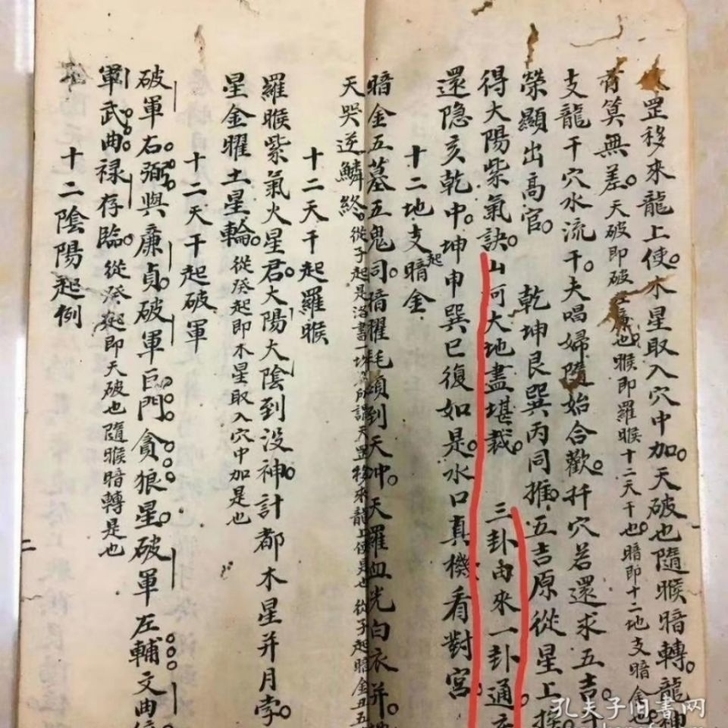 罡移來龍上使木星取入穴中加天破也隨睺暗轉龍神
有算無差天破即破軍也睺即羅睺十二天干也暗即十二地支暗金也
支龍干穴水流干夫唱婦隨始合歡扦穴若還求五吉
榮顯出高官 乾坤艮巽丙同推五吉原從星上
得太陽紫氣訣山河大地盡堪裁 三卦由來一卦通
還隐亥乾中坤申巽巳復如是水口真機看對宮
十二地支起暗金
暗金五墓五鬼司暗曜耗頭到天冲天羅血光白衣并
天哭逆鱗終從子起是
十二天干起羅睺
羅睺紫氣火星君太陽太陰到没神計都木星并月孛
星金曜土星輪從癸起即木星取入穴中加是也
十二天干起破軍
破軍右弼與廉貞破軍巨門貪狼星破軍左輔文曲
軍武曲禄存臨從癸起即天破也隨睺暗轉是也
十二陰陽起例
孔夫子旧書网